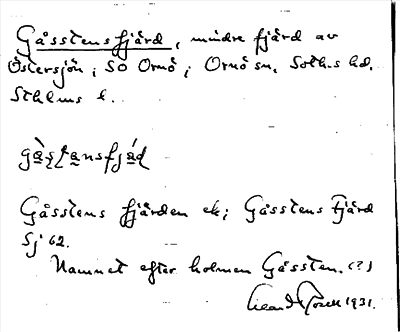 Gåsstensfjärd, mindre fjärd av
Östersjön i SO Ornö i Ornö sn, Soth.s hd.
Sthlms l.
gàstansfjá̄d
Gåsstens fjärden ek; Gåsstens Fjärd
Sj 62.
Namnet efter holmen Gåssten. (?)
1931.